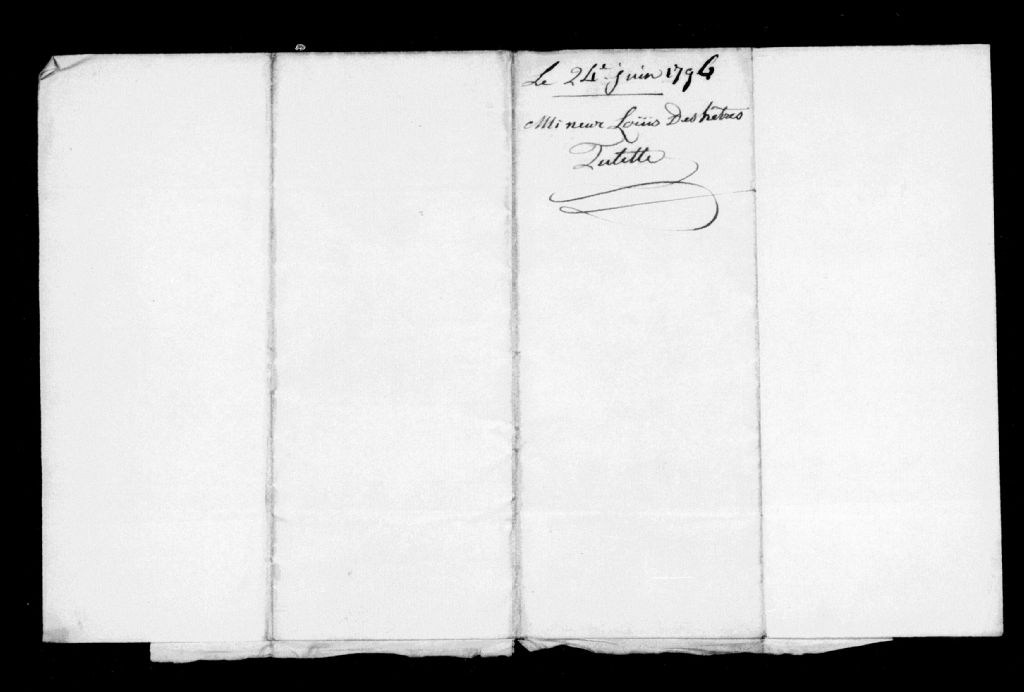 Le 24e. juin 1794
Mineur Loüis Deshêtres
Tutelle